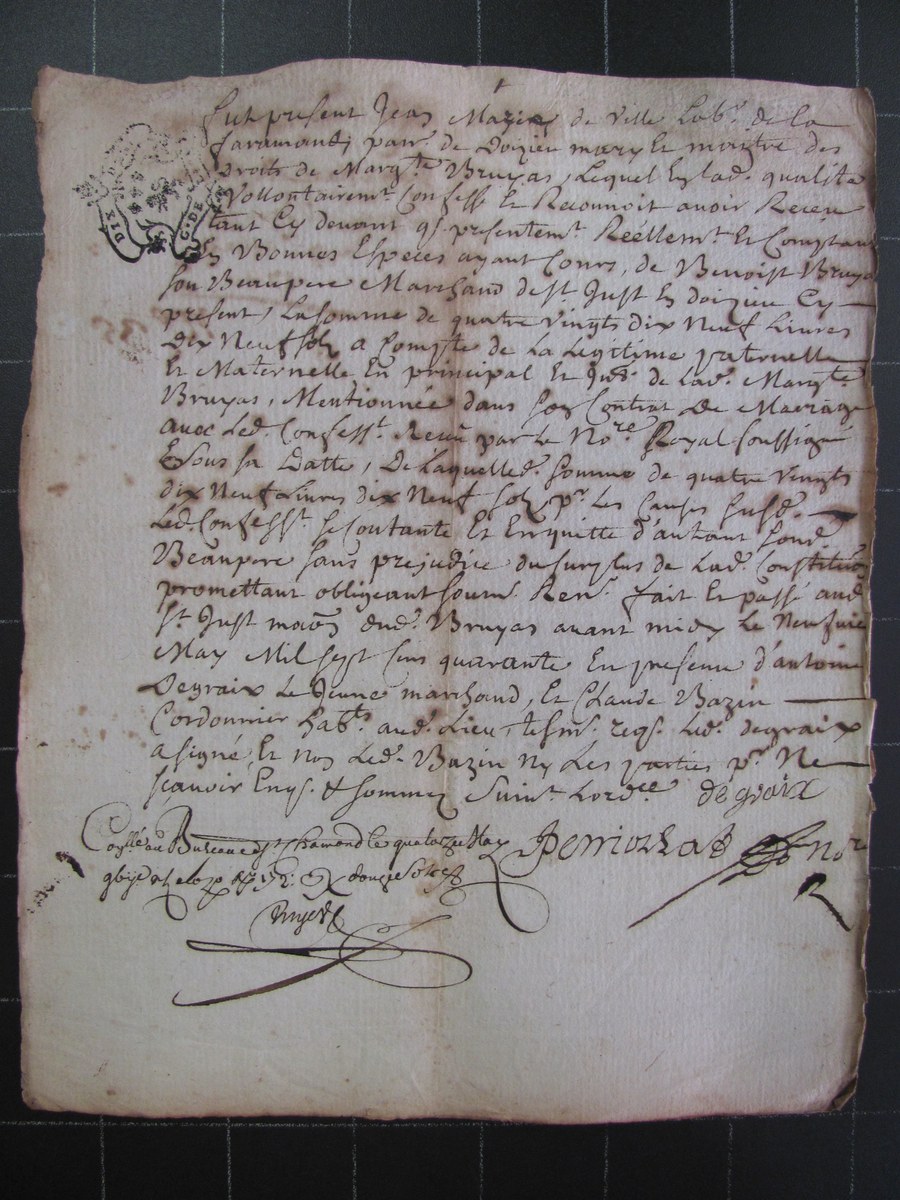 DIX
C. DE
Fut present Jean Mazen de Ville hab.t de la
faramond, parr. de Doizieu mary Et maistre des
Droits de Marg.te Bruyas, Lequel En lad. qualité
Vollontairem.t Confesse Et Reconnoit avoir Receu
tant Cy devant q̄ presentem.t Reéllem.t Et Comptant
En Bonnes Especes ayant Cours, de Benoist Bruyas
son Beaupere Marchand de S.t Just En doizieu Cy
present, La somme de quatre vingts dix Neuf Livres
Dix Neuf sols a Compte de La Legitime paternelle
Et Maternelle En principal Et de Lad. Marg.te
Bruyas, Mentionnée dans son Contrat De Mariage
avec Led. Confess.t Receu par Le No.re Royal soussigné
Sous sa Datte, De Laquelle d. somme de quatre vingts
dix Neuf Livres dix Neuf sols p.r Les Causes susd.
Led. Confess.t se Contante Et En quitte d'autant sond.
Beaupere sans prejudice du surplus de Lad. Constitution
promettant obligeant soum. Ren. fait Et passé aud.
S.t Just maōn dud. Bruyas avant midy Le Neufvie
May Mil sept Cens quarante En presence d'antoine
Degraix Le Jeune marchand, Et Claude Bazin
Cordonnier hab.t aud. Lieu, tesm. req. Led. degraix
a signé, Et non Led. Bazin Ny Les parties p.r Ne
sçavoir Enq. & sommez Suiv.t Lord.ce degraix
Conllé au Bureau de S.t Chamond le quatorze May
douze sols
No.re